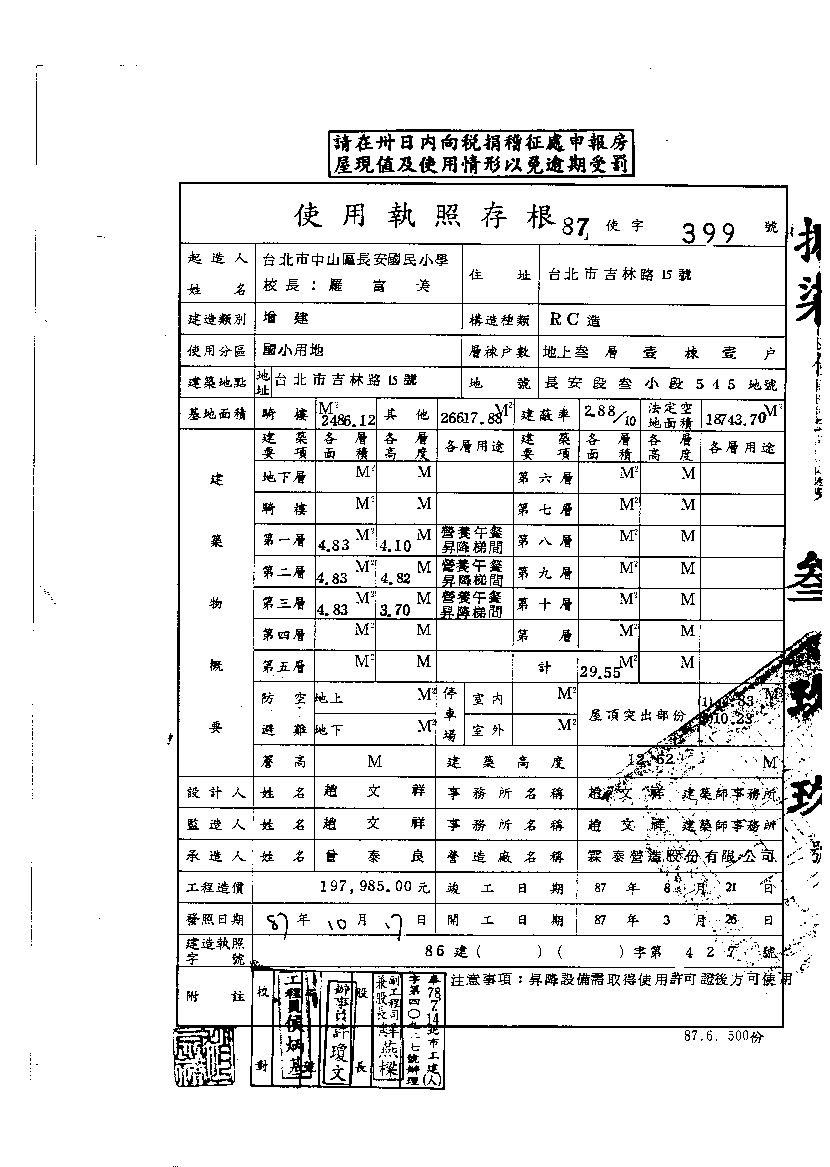 請在卅日內向稅捐稽征處申報房
屋現值及使用情形以免逾期受罰
使用執照存根 87 使字 399 號
起造人姓名 台北市中山區長安國民小學 校長：羅富美 住址 台北市吉林路15號
建造類別 增建 構造種類 RC造
使用分區 國小用地 層棟戶數 地上叁層壹棟壹戶
建築地點 地址 台北市吉林路15號 地號 長安段叁小段545地號
基地面積 騎樓 M² 2486.12 其他 26617.88 M² 建蔽率 2.88/10 法定空地面積 18743.70 M²
建築物概要
建築要項 各層面積 各層高度 各層用途 建築要項 各層面積 各層高度 各層用途
地下層 M² M 第六層 M² M
騎樓 M² M 第七層 M² M
第一層 4.83 M² 4.10 M 營養午餐昇降梯間 第八層 M² M
第二層 4.83 M² 4.82 M 營養午餐昇降梯間 第九層 M² M
第三層 4.83 M² 3.70 M 營養午餐昇降梯間 第十層 M² M
第四層 M² M 第 層 M² M
第五層 M² M 計 29.55 M² M
防空避難 地上 M² 停車場 室內 M² 屋頂突出部份 M²
地下 M² 室外 M² 10.23
簷高 M 建築高度 12.62 M
設計人 姓名 趙文祥 事務所名稱 趙文祥建築師事務所
監造人 姓名 趙文祥 事務所名稱 趙文祥建築師事務所
承造人 姓名 曾泰良 營造廠名稱 霖泰營造股份有限公司
工程造價 197,985.00元 竣工日期 87年8月21日
發照日期 87年10月17日 開工日期 87年3月26日
建造執照字號 86建( )( )字第427號
附註 注意事項：昇降設備需取得使用許可證後方可使用
校對
工程員侯炳基
辦事員許瓊文
股長
87.6. 500份
叁
玖
玖
號